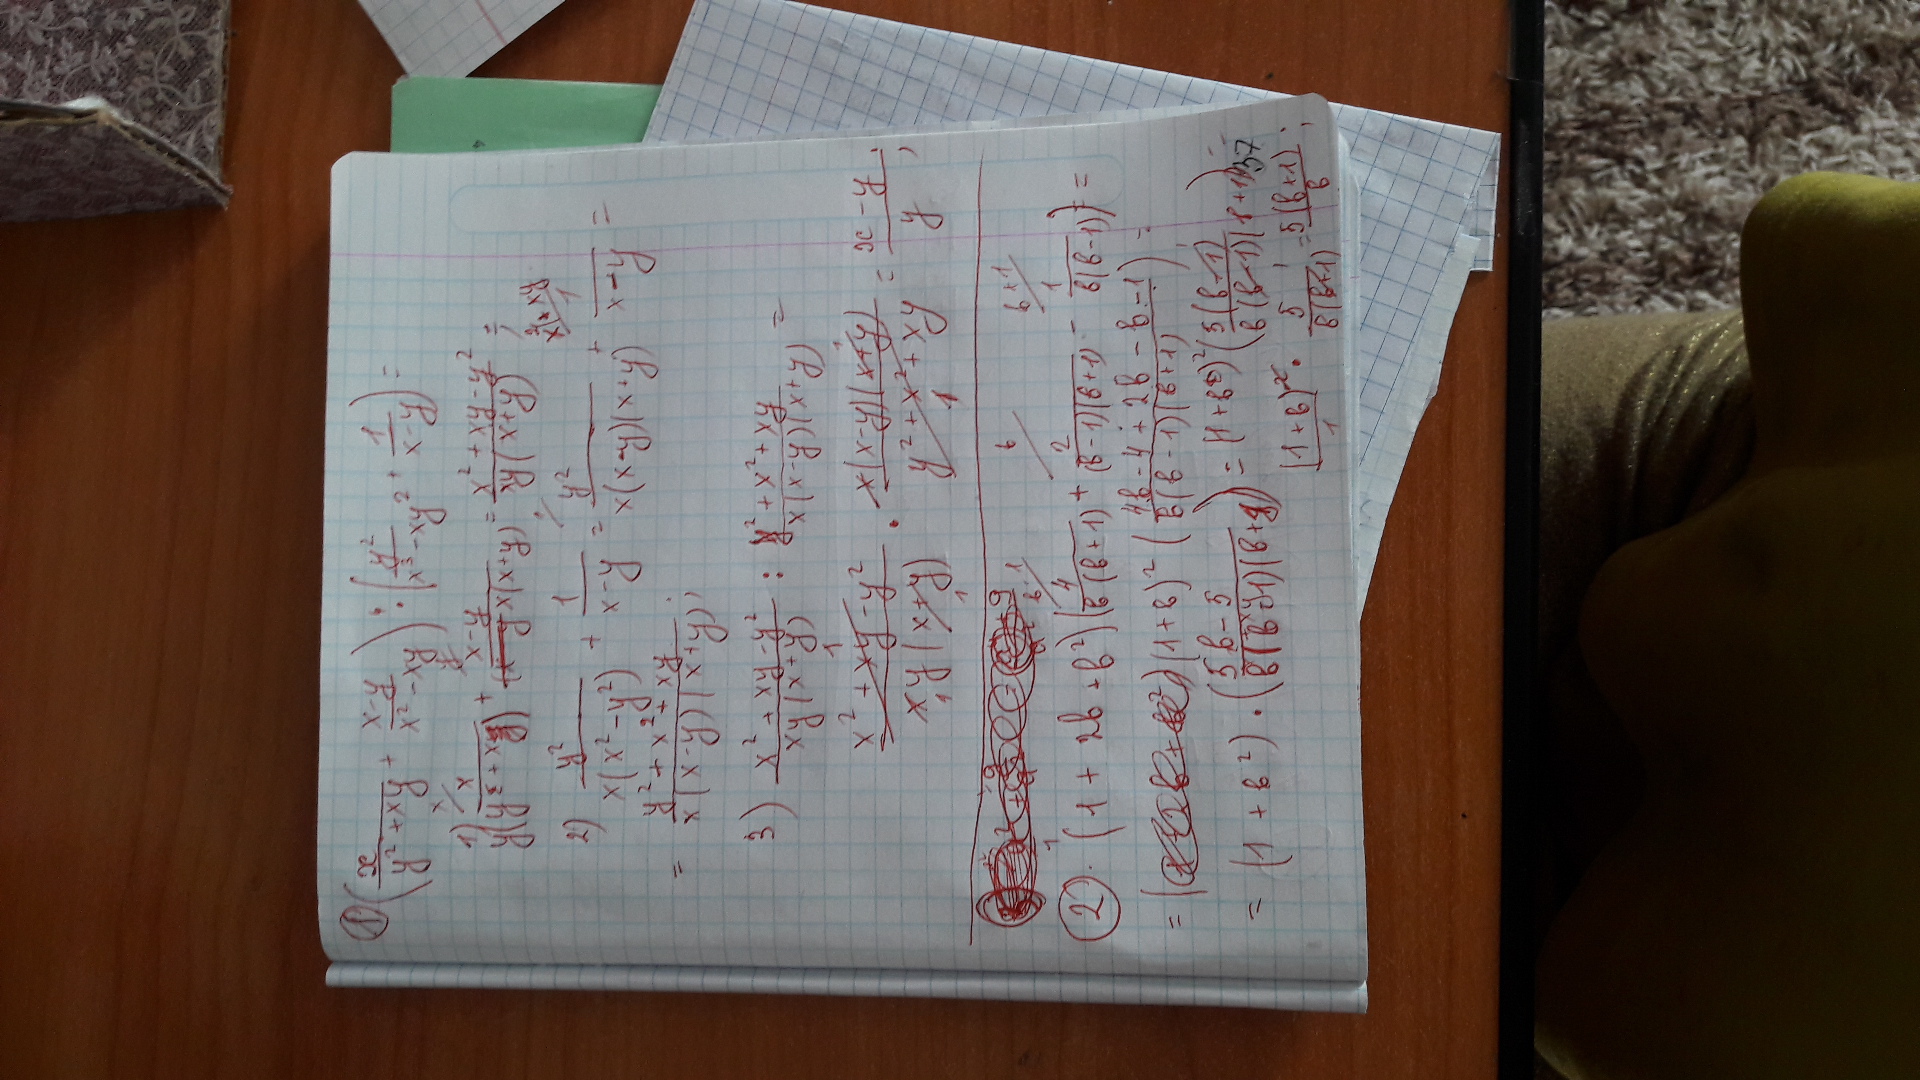 ① (x/(y²+xy) + (x-y)/(x²-xy)) : (y²/(x³-xy²) + 1/(x-y)) =
1) x/(y(y+x)) + (x-y)/(x(x+y)) = (x²+xy-y²)/(xy(x+y)) ;
2) y²/(x(x²-y²)) + 1/(x-y) = y²/(x(x-y)(x+y)) + 1/(x-y) =
= (y²+x²+xy)/(x(x-y)(x+y)) ;
3) (x²+xy-y²)/(xy(x+y)) : (y²+x²+xy)/(x(x-y)(x+y)) =
(x²+xy-y²)/(xy(x+y)) · (x(x-y)(x+y))/(y²+x²+xy) = (x-y)/y ;
② (1+2b+b²)(4/(b(b+1)) + 2/((b-1)(b+1)) - 1/(b(b-1))) =
= (1+b)² ((4b-4+2b-b-1)/(b(b-1)(b+1))) =
= (1+b²) · ((5b-5)/(b(b-1)(b+1))) = (1+b)² (5(b-1)/(b(b-1)(b+1)))
37
(1+b)²/1 · 5/(b(b+1)) = 5(b+1)/b ;